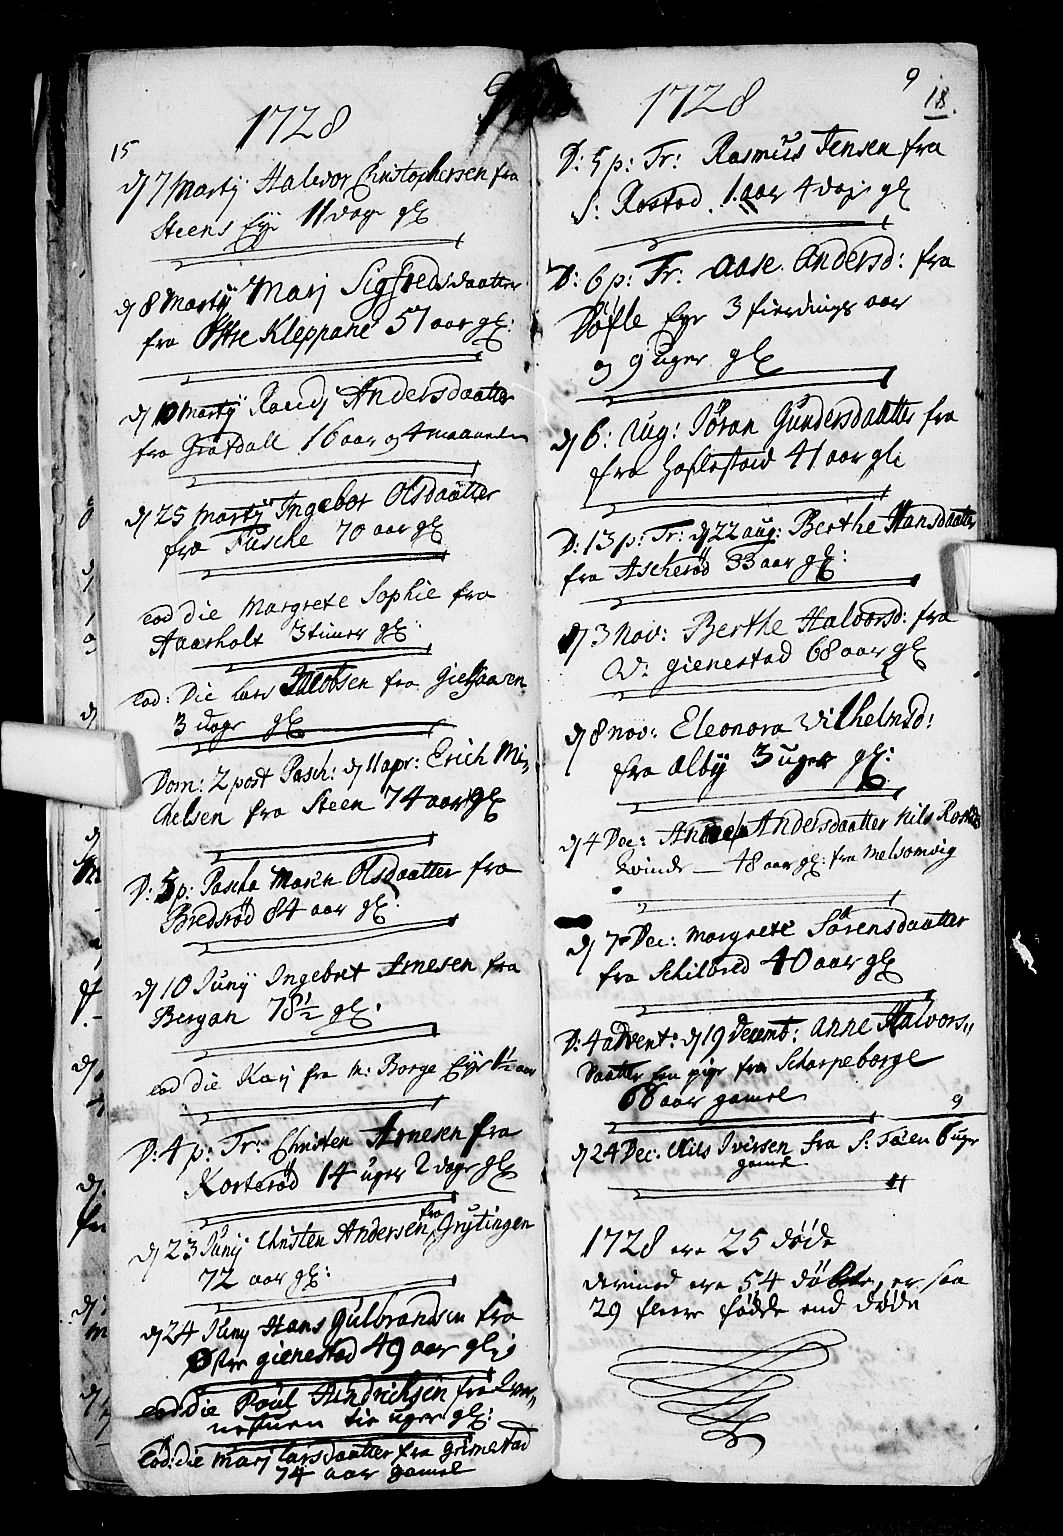 1728
15
d 7 Martÿ Halvor Christophersen fra
Steens Eye 11 dage gl
d 8 Martÿ Marj Sigfredsdaatter
fra Østre Kleppane 57 aar gl:
d 10 Martÿ Randj Andersdaatter
fra 16 aar og 4 maaneder
d 25 Martÿ Ingebor Olsdaatter
fra Fusche 70 aar gl
eod die Margrete Sophie fra
Aaarholt 3 timer gl:
eod: Die Lars Jacobsen fra
3 dage gl
Dom: 2 post Pasch: d 11 apr: Erich Mi-
chelsen fra Steen 74 aar gl
D: 5 p: Pascha Maren Olsdaatter fra
Bredsrød 84 aar gl:
d 10 Junÿ Ingebret Arnesen fra
Bergan 78½ gl:
eod die Karj fra n: Borge Eye ½ aar
D: 4 p: Tr: Christen Arnesen fra
Korterød 14 uger 2 dage gl
d 23 Junÿ Christen Andersen fra Grytingen
72 aar gl:
d 24 Junÿ Hans Gulbrandsen fra
Østre gienestad 49 aar gl:
eod: die Poul Hendrichsen fra
tie uger gl:
Eod: die Marj Larsdaatter fra Grimestad
74 aar gamel
1728
9
18.
D: 5 p: Tr: Rasmus Jensen fra
S: Rostad 1. aar 4 dage gl
D: 6 p: Tr: Aase Andersd: fra
Døfle Eye 3 fierdings aar
og 9 uger gl
d 6: Aug: Jøran Gundersdaatter fra
fra Haslestad 41 aar gl:
D: 13 p: Tr: d 22 aug: Berthe Hansdaatter
fra Ascherød 33 aar gl:
d 3 Nov: Berthe Halvorsd: fra
V: gienestad 68 aar gl
d 8 nov: Eleonora Vilhelmsd:
fra Alby 3 uger gl:
d 4 Dec: Andersdaatter Nils
Kvinde — 48 aar gl: fra Melsomvig
d 7 Dec: Margrete Sørensdaatter
fra Schilbred 40 aar gl
D: 4 advent: d 19 Decemb: Anne Halvors,,
daatter en pige fra Scharpeborge
68 aar gamel
9
d 24 Dec. Nils Iversen fra S: Tøien 6 uger
gamel
1728 ere 25 døde
derimod ere 54 døbte, er saa
29 fleere fødde end døde